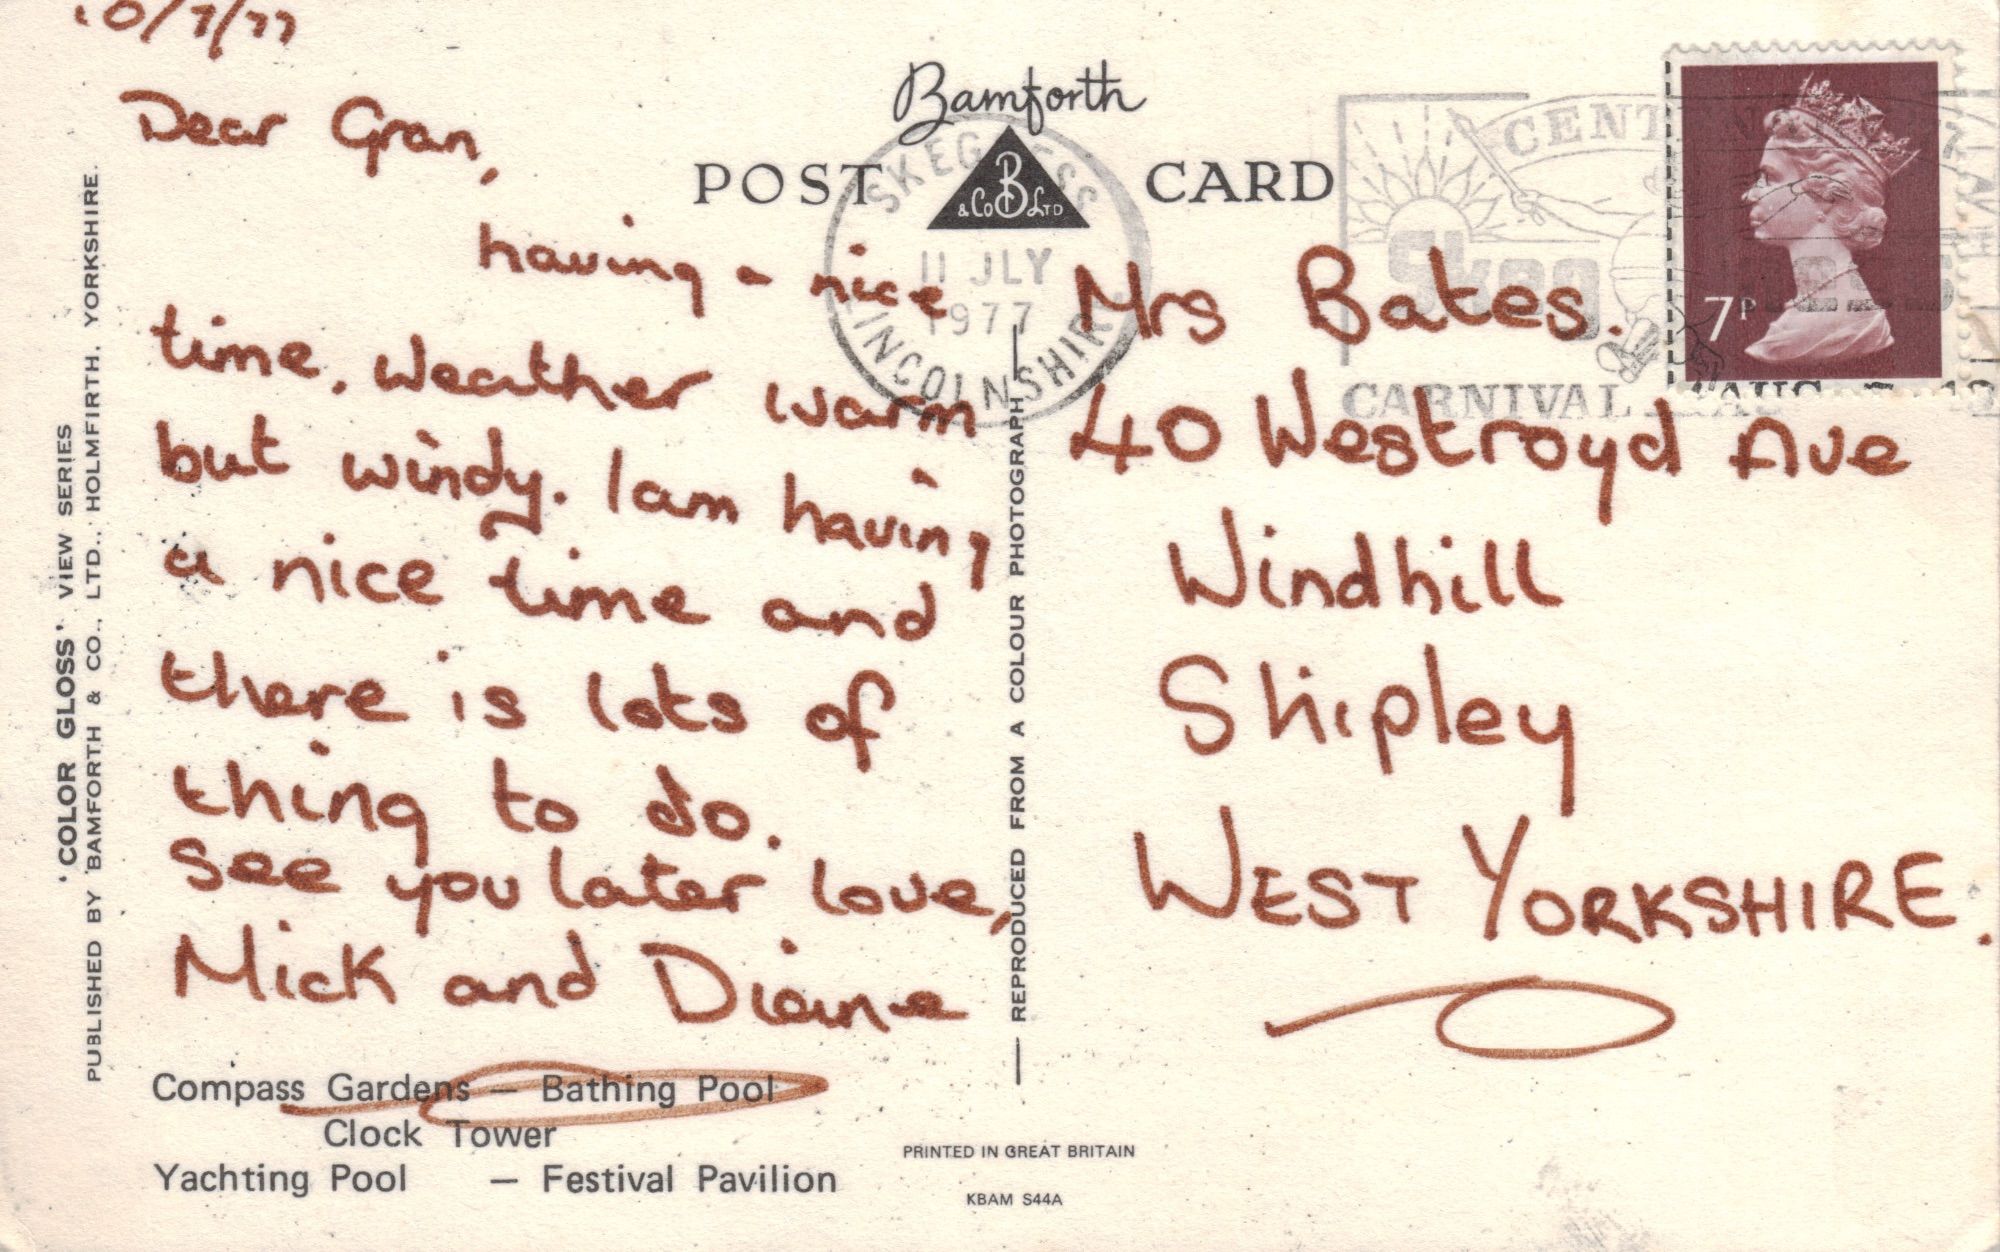 10/7/77
Dear Gran,
having a nice
time. Weather warm
but windy. I am having
a nice time and
there is lots of
thing to do.
See you later love,
Mick and Diane
Compass Gardens — Bathing Pool
Clock Tower
Yachting Pool — Festival Pavilion
'COLOR GLOSS' VIEW SERIES
PUBLISHED BY BAMFORTH & CO., LTD., HOLMFIRTH, YORKSHIRE.
Bamforth
POST CARD
B
& Co LTD
SKEGNESS
11 JLY
1977
LINCOLNSHIRE
REPRODUCED FROM A COLOUR PHOTOGRAPH
CARNIVAL
7P
Mrs Bates.
40 Westroyd Ave
Windhill
Shipley
WEST YORKSHIRE.
PRINTED IN GREAT BRITAIN
KBAM S44A